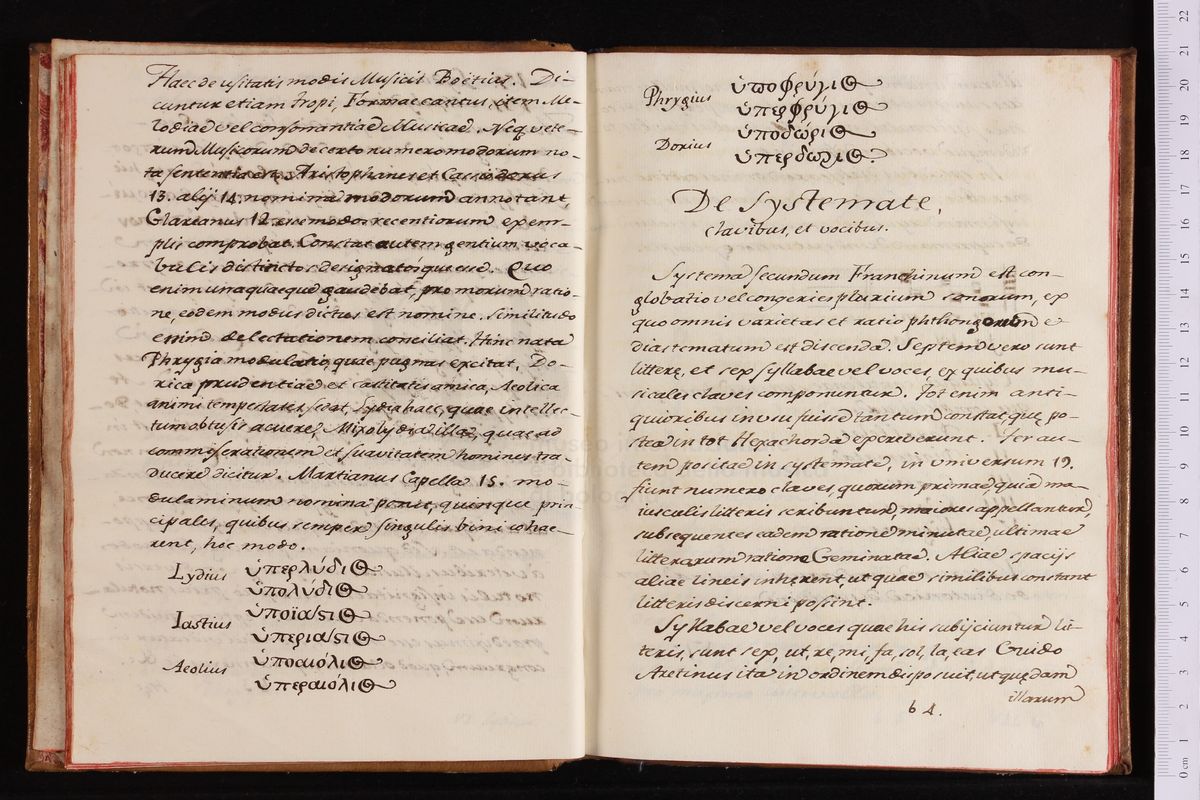 Haec de usitatis modis Musicis Boëtius. Di-
cuntur etiam tropi, Formae cantus, item Me-
lodiae vel consonantiae Musicae. Neq vete-
rum Musicorum de certo numero modorum no-
ta sententia est. Aristophanes et Cassiodorus
13. alij 14. nomina modorum annotant,
Glarianus 12. eos modos recentiorum exem-
plis comprobat. Constat autem gentium voca-
bulis distinctos designatosque esse. Quo
enim unaquaeque gaudebat, pro morum ratio-
ne, eodem modus dictus est nomine. Similitudo
enim delectationem conciliat. Hinc nata
Phrygia modulatio, quae pugnas excitat, Do-
rica prudentiae et castitatis amica, Aeolica
animi tempestates sedat, Lydia haec, quae intellec-
tum obtusis acuere, Mixolydia illa, quae ad
commiserationem et suavitatem homines tra-
ducere dicitur. Martianus Capella 15. mo-
dulaminum nomina ponit, quinque prin-
cipales, quibus semper singulis bini cohae-
rent, hoc modo.
Lydius ὑπερλύδιος
ὑπολύδιος
Iastius ὑποϊάςιος
ὑπεριάςιος
Aeolius ὑποαιόλιος
ὑπεραιόλιος
Phrygius ὑποφρύγιος
ὑπερφρύγιος
Dorius ὑποδώριος
ὑπερδώλιος.
De Systemate,
clavibus, et vocibus.
Systema secundum Franchinum est con-
globatio vel congeries plurium sonorum, ex
quo omnis varietas et ratio phthongorum et
diastematum est discenda. Septem vero sunt
litterę, et sex syllabae vel voces, ex quibus mu-
sicales claves componuntur. Tot enim anti-
quioribus in usu fuisse tantum constat que po-
stea in tot Hexachorda excreverunt. Ter au-
tem positae in systemate, in universum 19.
fiunt numero claves, quorum primae, quia ma-
iusculis litteris scribuntur, maiores appellantur,
subsequentes eadem ratione minutae, ultimae
litterarum ratione Geminatae. Aliae spacijs
aliae lineis inhęrent ut quae similibus constant
litteris discerni possint.
Syllabae vel voces quae his subijciuntur lit-
teris, sunt sex, ut, re, mi, fa, sol, la, eas Guido
Aretinus ita in ordinem disposuit, ut quędam
illarum
b 4.